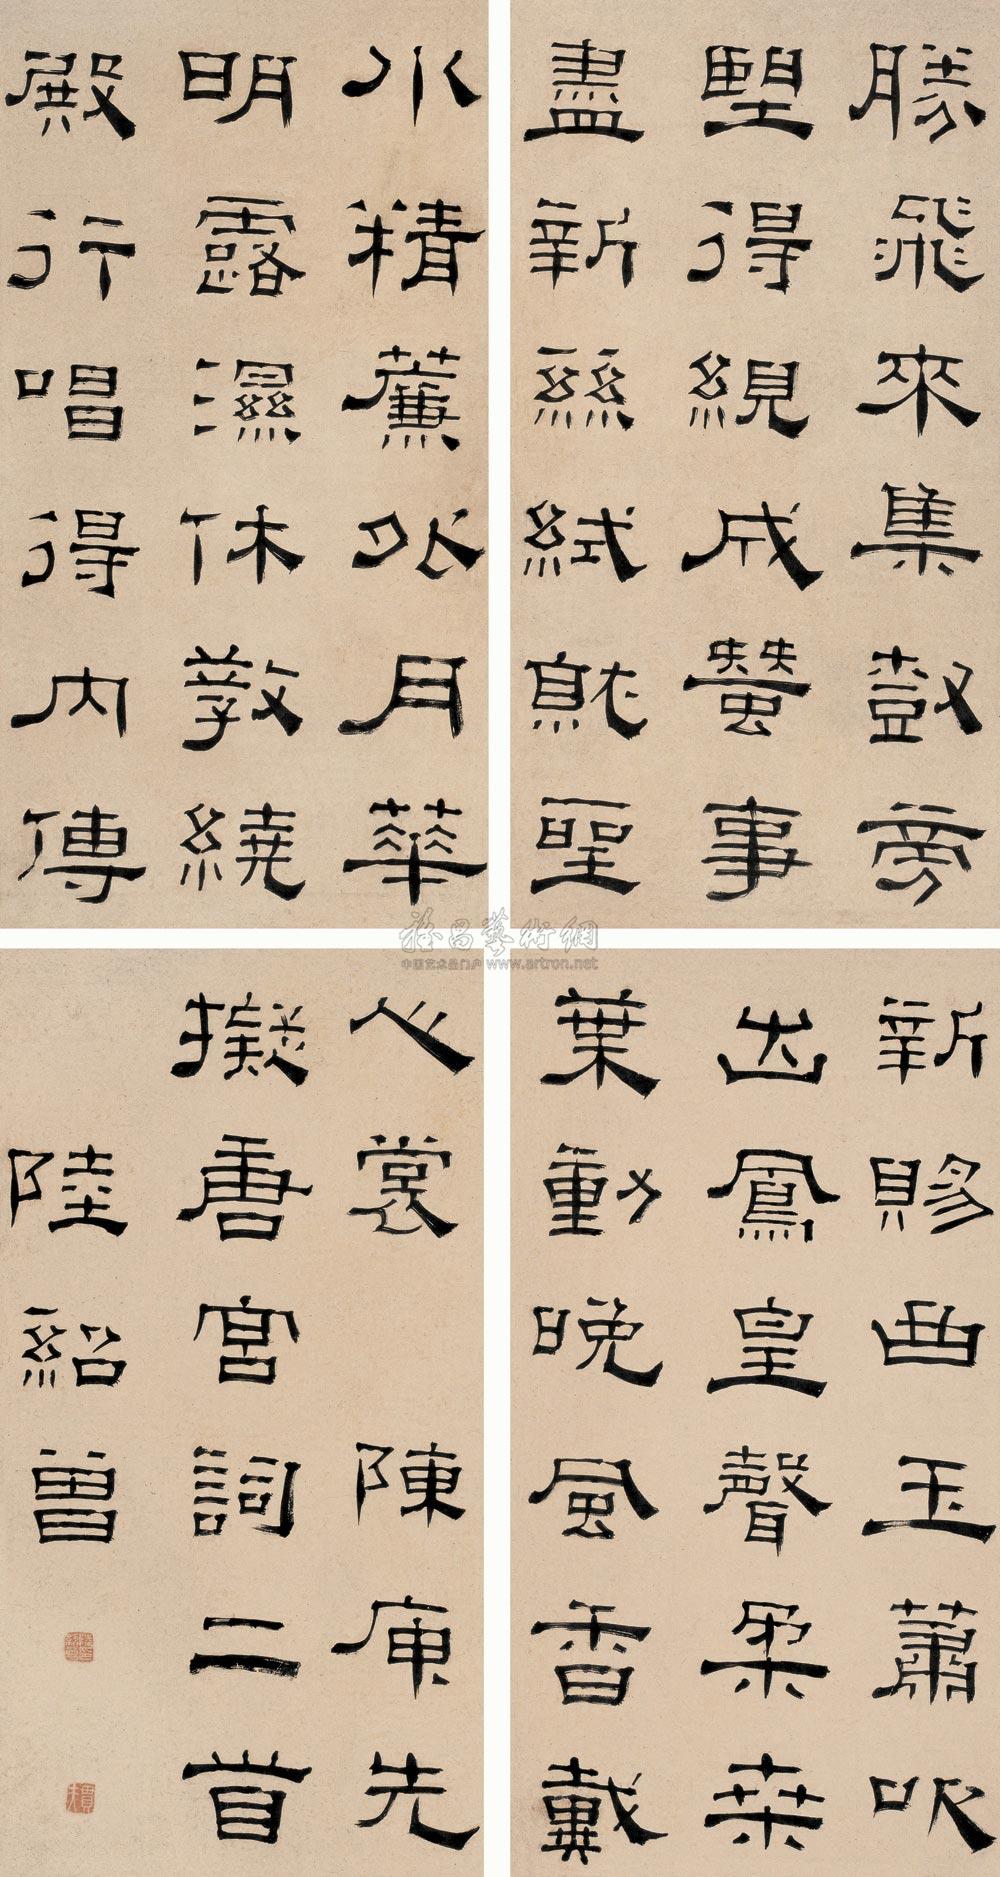 水精簾外月華
明露濕休教繞
殿行唱得內傳
新賜曲玉簫吹
出鳳皇聲柔桑
葉動晚風香戴
勝飛來集鼓旁
望得絸成蠶事
盡新絲就聖
心裳 陳庚先
擬唐宮詞二首
陸紹曾
雅昌藝術網
中国艺术品门户 www.artron.net